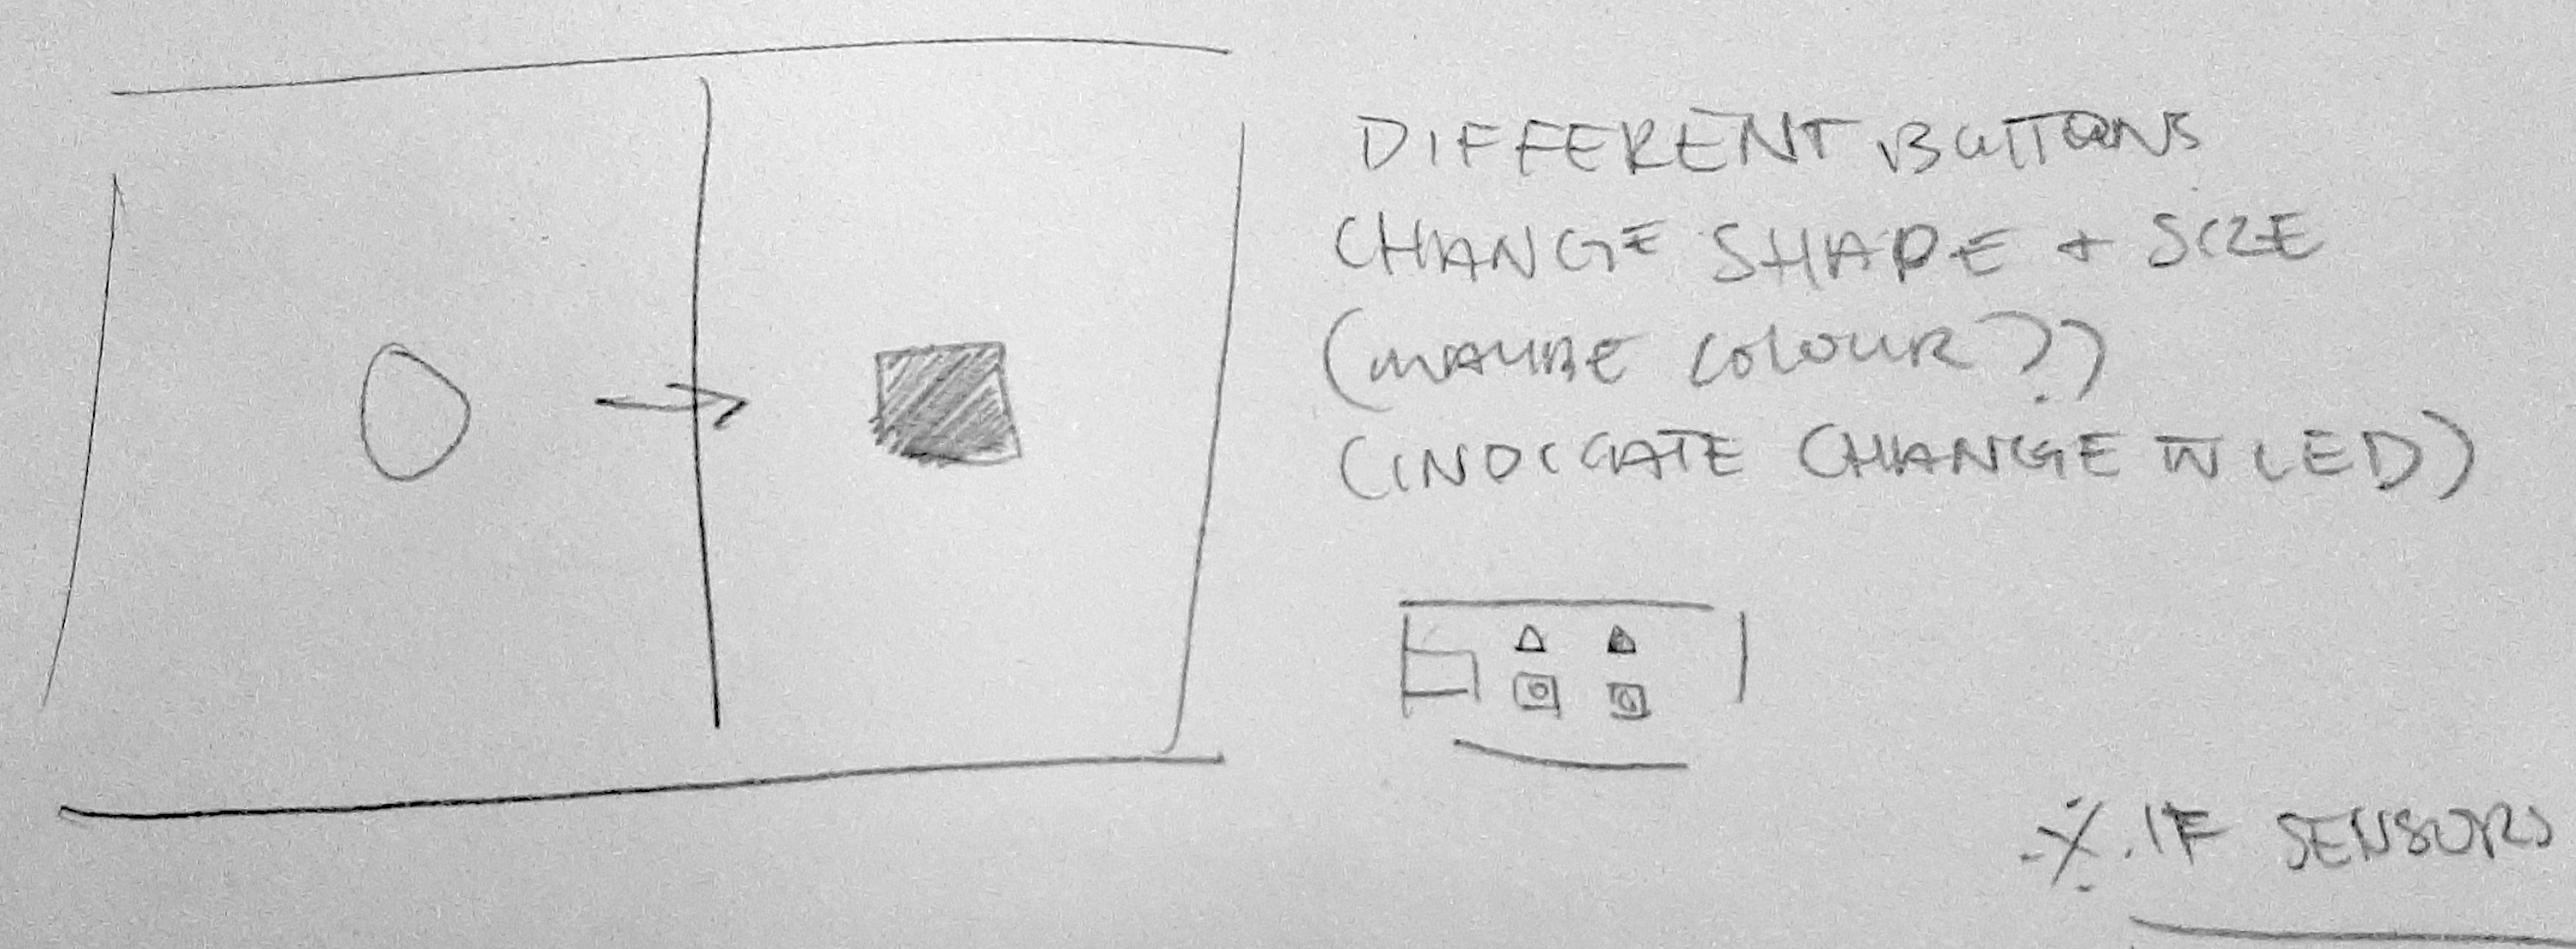 DIFFERENT BUTTONS
CHANGE SHAPE + SIZE
(MAYBE COLOUR??)
(INDICATE CHANGE W LED)
※ .IF SENSORS